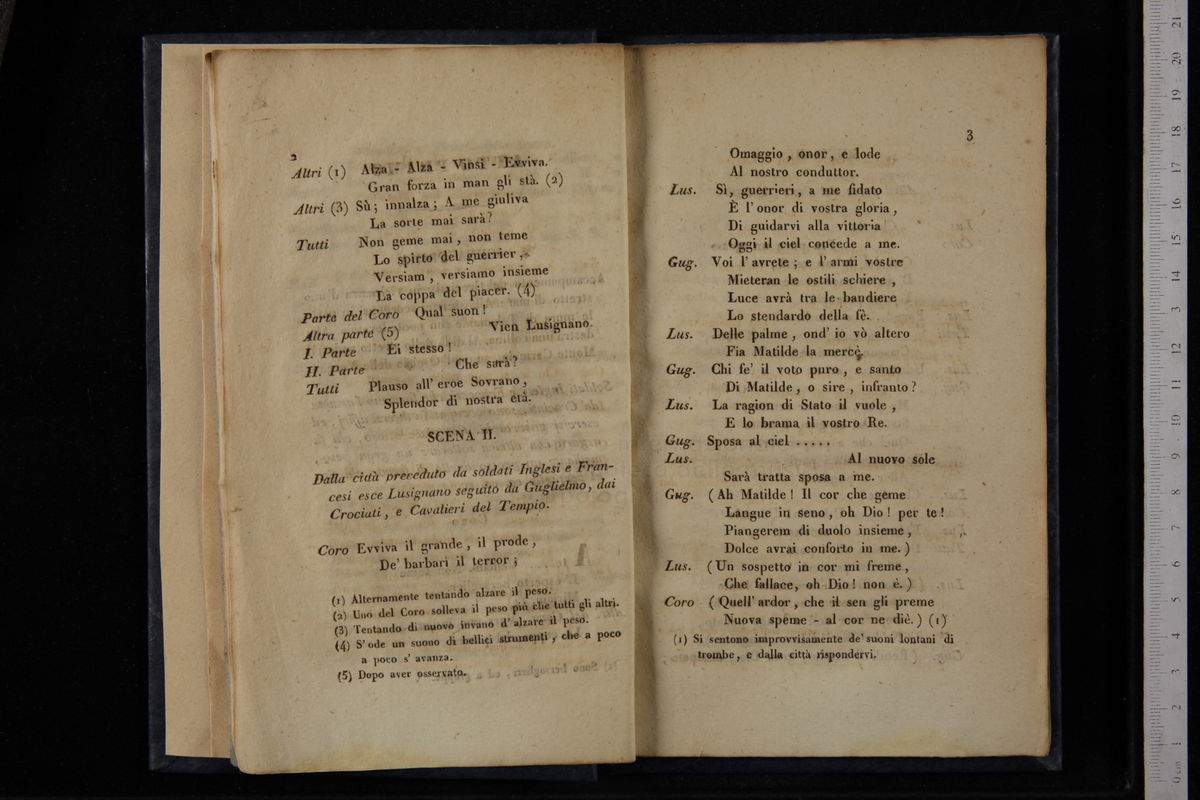 2
Altri (1) Alza - Alza - Vinsi - Evviva.
Gran forza in man gli stà. (2)
Altri (3) Sù; innalza; A me giuliva
La sorte mai sarà?
Tutti Non geme mai, non teme
Lo spirto del guerrier,
Versiam, versiamo insieme
La coppa del piacer. (4)
Parte del Coro Qual suon!
Altra parte (5) Vien Lusignano.
I. Parte Ei stesso!
II. Parte Che sarà?
Tutti Plauso all' eroe Sovrano,
Splendor di nostra età.
SCENA II.
Dalla cidà preceduto da soldati Inglesi e Fran-
cesi esce Lusignano seguito da Guglielmo, dai
Crociati, e Cavalieri del Tempio.
Coro Evviva il grande, il prode,
De' barbari il terror;
(1) Alternamente tentando alzare il peso.
(2) Uno del Coro solleva il peso più che tutti gli altri.
(3) Tentando di nuovo invano d'alzare il peso.
(4) S'ode un suono di bellici strumenti, che a poco
a poco s' avanza.
(5) Dopo aver osservato.
3
Omaggio, onor, e lode
Al nostro conduttor.
Lus. Sì, guerrieri, a me fidato
È l'onor di vostra gloria,
Di guidarvi alla vittoria
Oggi il ciel concede a me.
Gug. Voi l'avrete; e l'armi vostre
Mieteran le ostili schiere,
Luce avrà tra le bandiere
Lo stendardo della fè.
Lus. Delle palme, ond' io vò altero
Fia Matilde la mercè.
Gug. Chi fe' il voto puro, e santo
Di Matilde, o sire, infranto?
Lus. La ragion di Stato il vuole,
E lo brama il vostro Re.
Gug. Sposa al ciel .....
Lus. Al nuovo sole
Sarà tratta sposa a me.
Gug. (Ah Matilde! Il cor che geme
Langue in seno, oh Dio! per te!
Piangerem di duolo insieme,
Dolce avrai conforto in me.)
Lus. (Un sospetto in cor mi freme,
Che fallace, oh Dio! non è.)
Coro (Quell' ardor, che il sen gli preme
Nuova spème - al cor ne diè.) (1)
(1) Si sentono improvvisamente de' suoni lontani di
trombe, e dalla città rispondervi.
0 cm 1 2 3 4 5 6 7 8 9 10 11 12 13 14 15 16 17 18 19 20 21